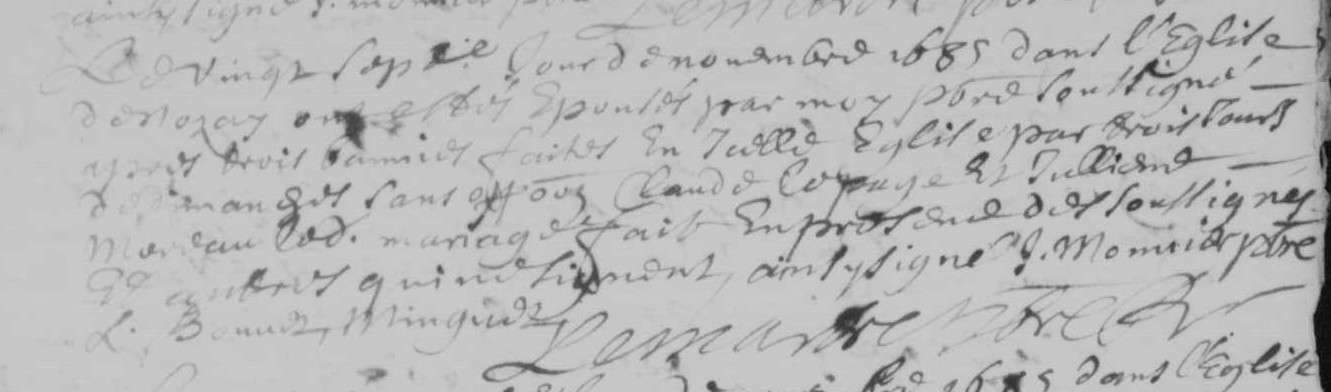 ainsy signé J. monnier pbre Lemaistre pbre
Le vingt sepme Jour de novembre 1685 dans l'Eglise
de Nozay ont estés Epousés par moy pbre soussigné
apres trois bannies faites En Icelle Eglise par trois Jours
de dimanches sans oppoon Claude Lepage Et Jullienne
Moreau Led. mariage fait En presence des soussignés
Et autres qui ne signent, ainsy signé J. Monnier pbre
L. Bonnet, Minguet Lemaistre pbre Rr
1685 dans l'Eglise